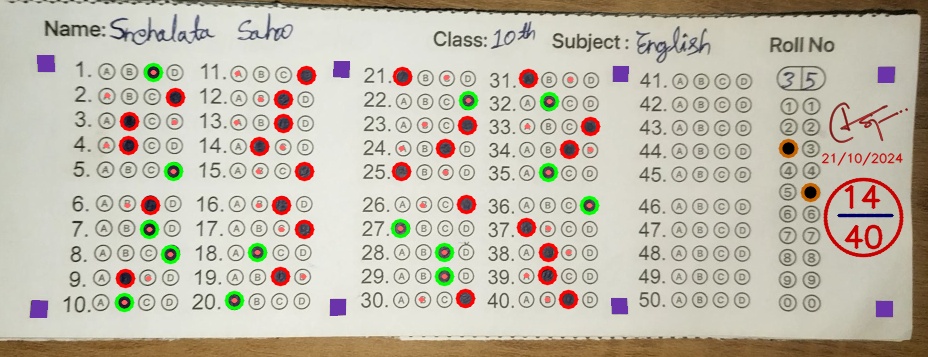 Name: Snehalata Sahoo
Class: 10th Subject: English Roll No
35
1. A B D
2. A B C
3. A C D
4. A C D
5. A B C
6. A B D
7. A B D
8. A B C
9. A C D
10. A C D
11. A B C
12. A B D
13. A B D
14. A C D
15. A B C
16. A B D
17. A B C
18. A C D
19. A B D
20. B C D
21. B C D
22. A B C
23. A B C
24. A B D
25. B C D
26. A B C
27. B C D
28. A B D
29. A B D
30. A B C
31. B C D
32. A C D
33. A B C
34. A B D
35. A C D
36. A B C
37. B C D
38. A C D
39. A C D
40. A B D
41. A B C D
42. A B C D
43. A B C D
44. A B C D
45. A B C D
46. A B C D
47. A B C D
48. A B C D
49. A B C D
50. A B C D
1 1
2 2
3
4 4
5
6 6
7 7
8 8
9 9
0 0
21/10/2024
14
40